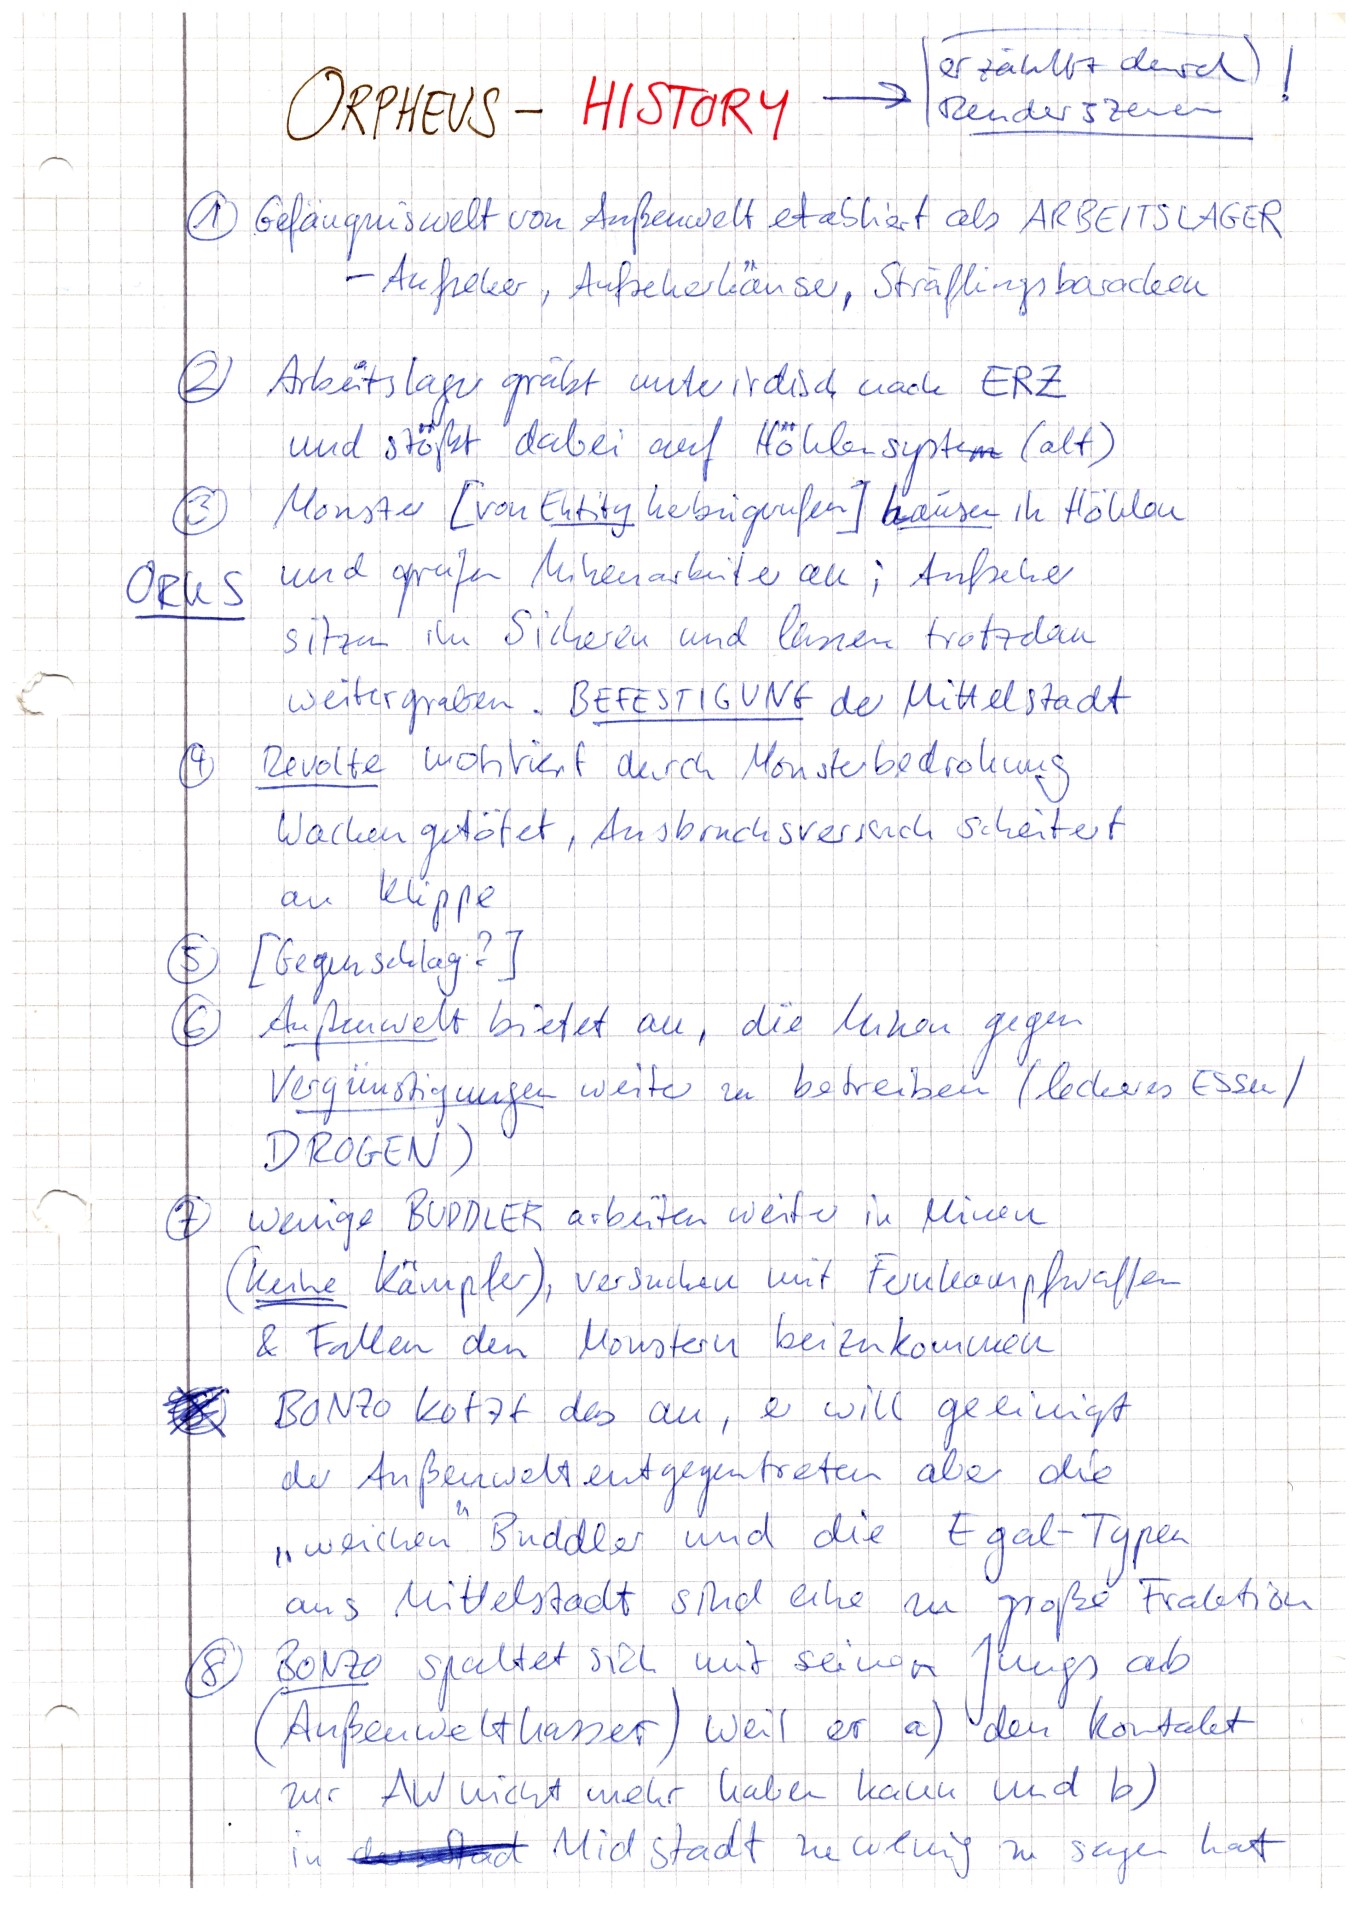 ORPHEUS - HISTORY → erzählt durch !
Renderszenen
① Gefängniswelt von Außenwelt etabliert als ARBEITSLAGER
- Aufseher, Aufseherhäuser, Sträflingsbaracken
② Arbeitslager gräbt unterirdisch nach ERZ
und stößt dabei auf Höhlensystem (alt)
③ Monster [von Entity herbeigerufen] hausen in Höhlen
ORKS und greifen Minenarbeiter an; Aufseher
sitzen im Sicheren und lassen trotzdem
weitergraben. BEFESTIGUNG der Mittelstadt
④ Revolte motiviert durch Monsterbedrohung
Wachen getötet, Ausbruchsversuch scheitert
an Klippe
⑤ [Gegenschlag?]
⑥ Außenwelt bietet an, die Minen gegen
Vergünstigungen weiter zu betreiben (leckeres Essen/
DROGEN)
⑦ wenige BUDDLER arbeiten weiter in Minen
(keine Kämpfer), versuchen mit Fernkampfwaffen
& Fallen den Monstern beizukommen
BONZO kotzt das an, er will geeinigt
der Außenwelt entgegentreten aber die
„weichen" Buddler und die Egal-Typen
aus Mittelstadt sind eine zu große Fraktion
⑧ BONZO spaltet sich mit seinen Jungs ab
(Außenwelthasser) weil er a) den Kontakt
zur AW nicht mehr haben kann und b)
in Midstadt zu wenig zu sagen hat